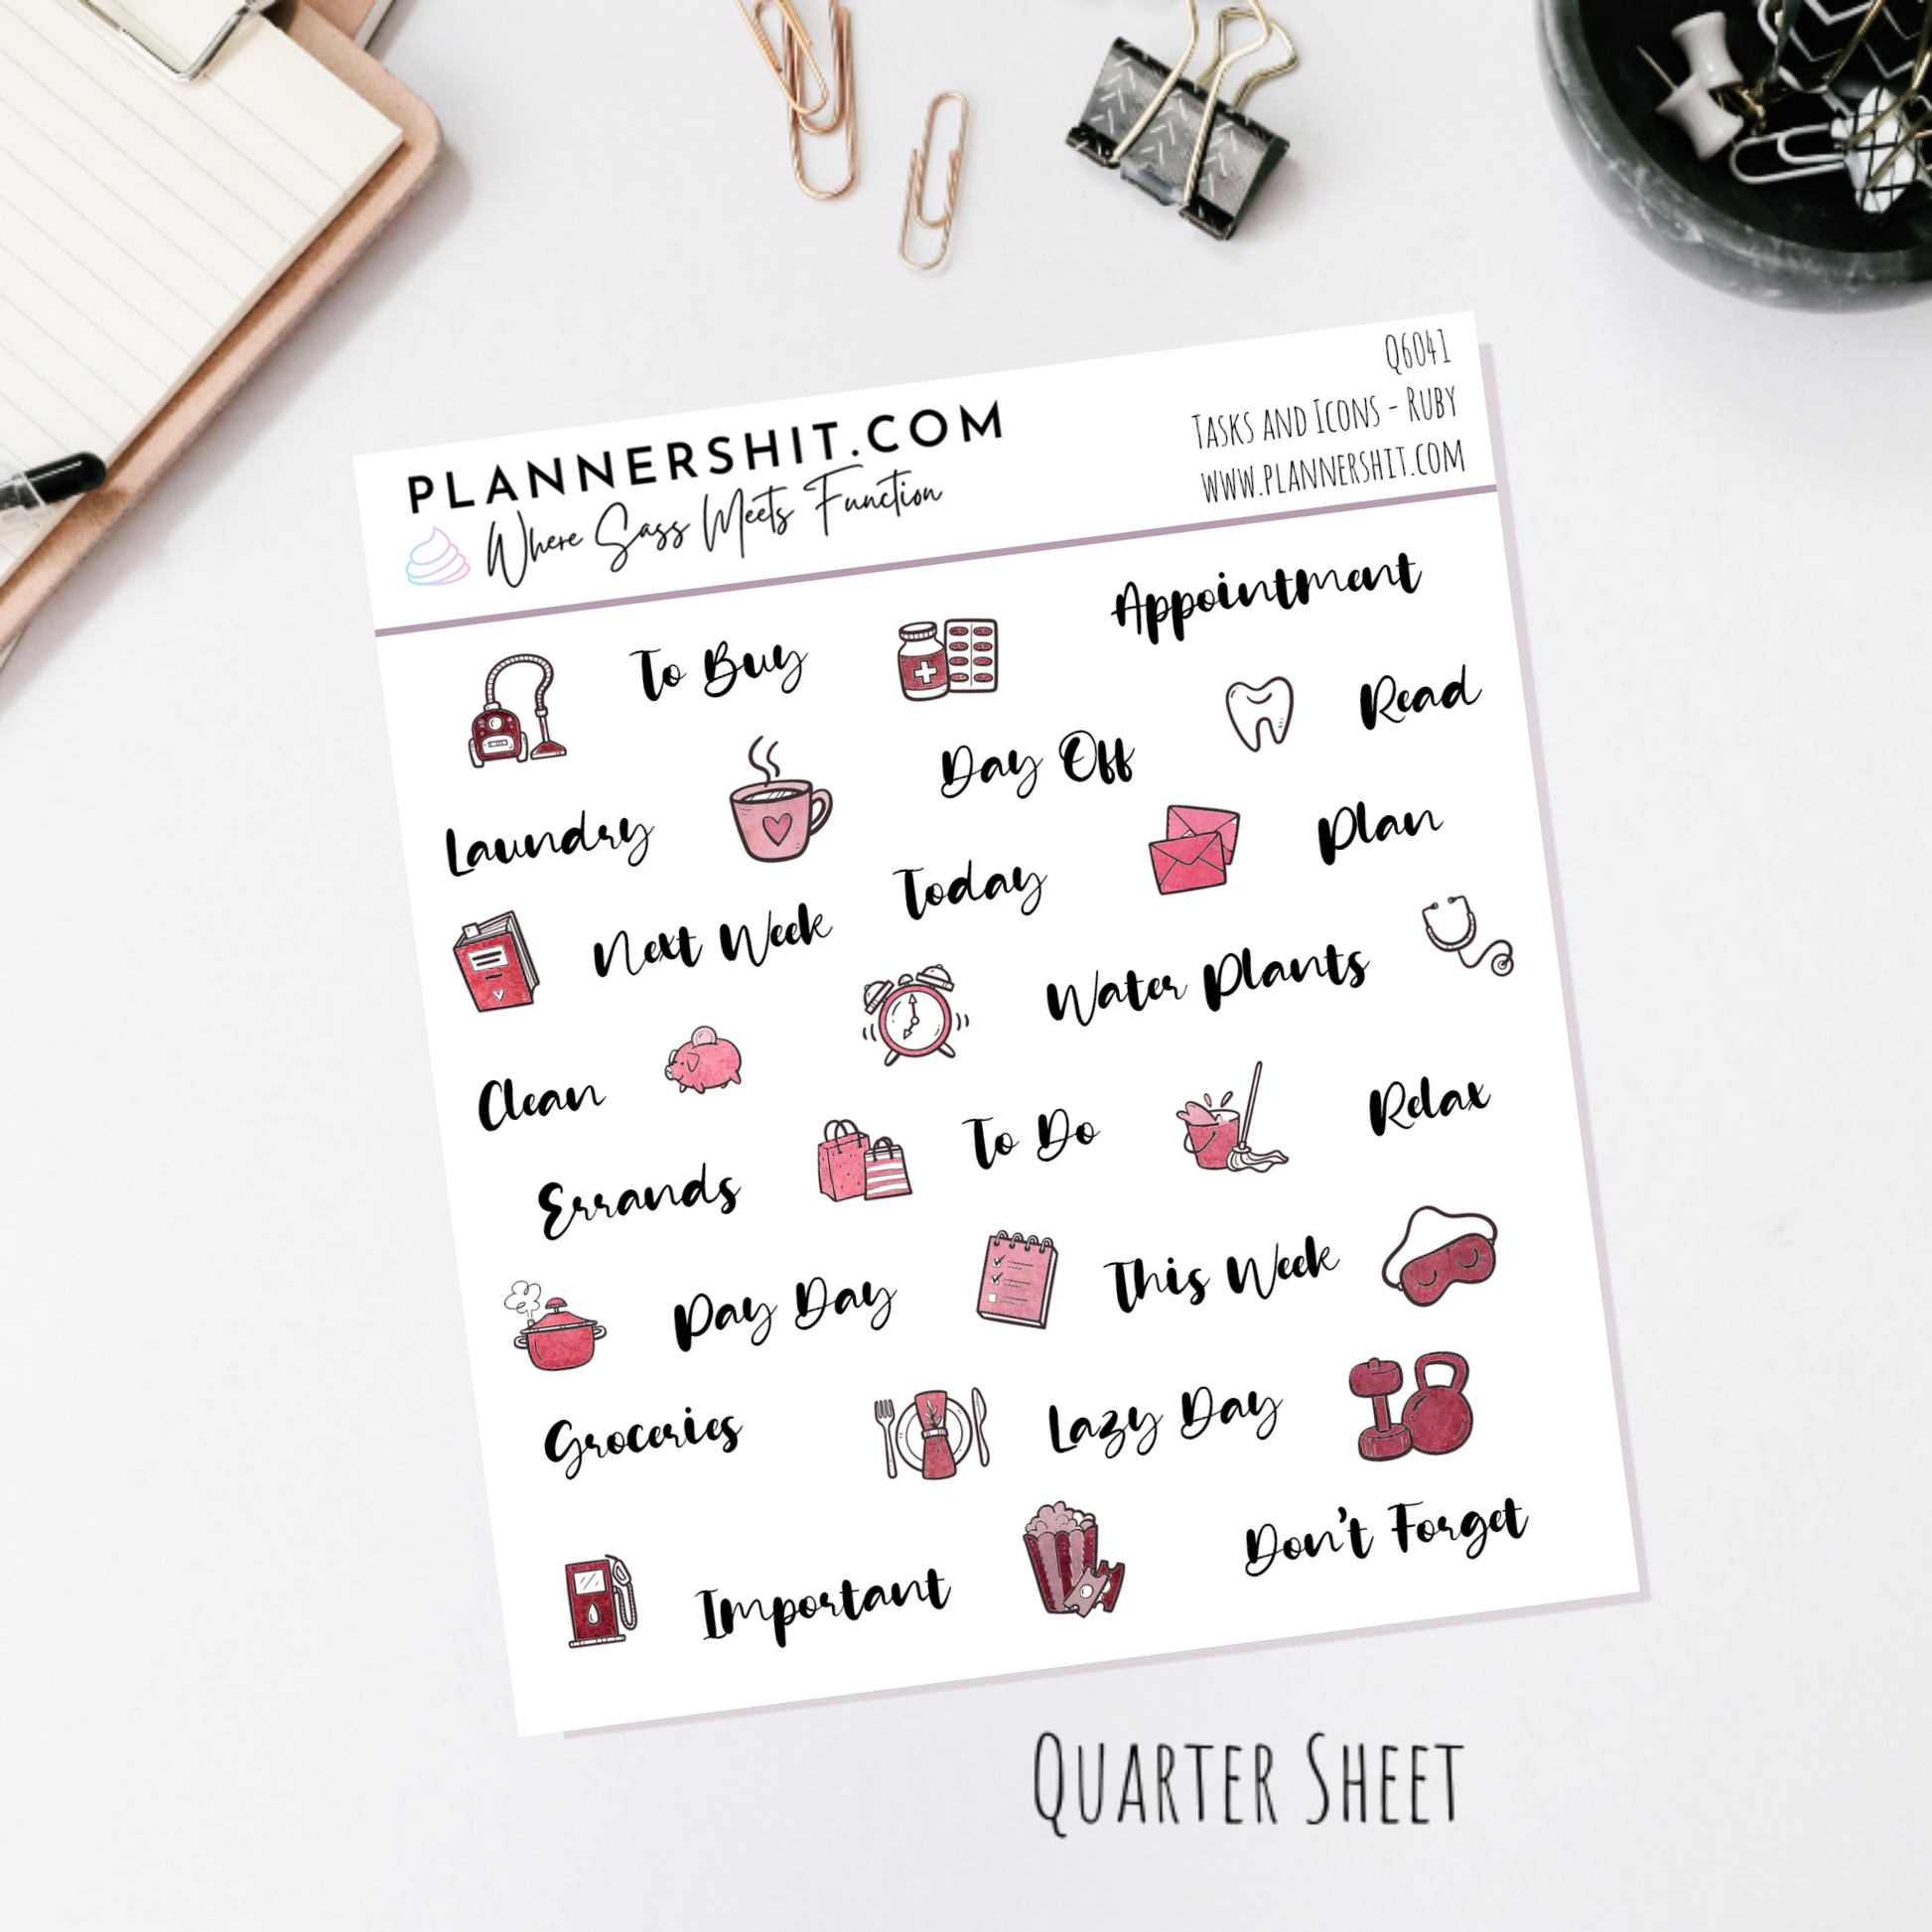 PLANNERSHIT.COM
Where Sass Meets Function
Q6041
Tasks and Icons - Ruby
www.plannershit.com
To Buy
Appointment
Read
Day Off
Laundry
Plan
Today
Next Week
Water Plants
Clean
Relax
To Do
Errands
This Week
Pay Day
Lazy Day
Groceries
Don't Forget
Important
Quarter Sheet